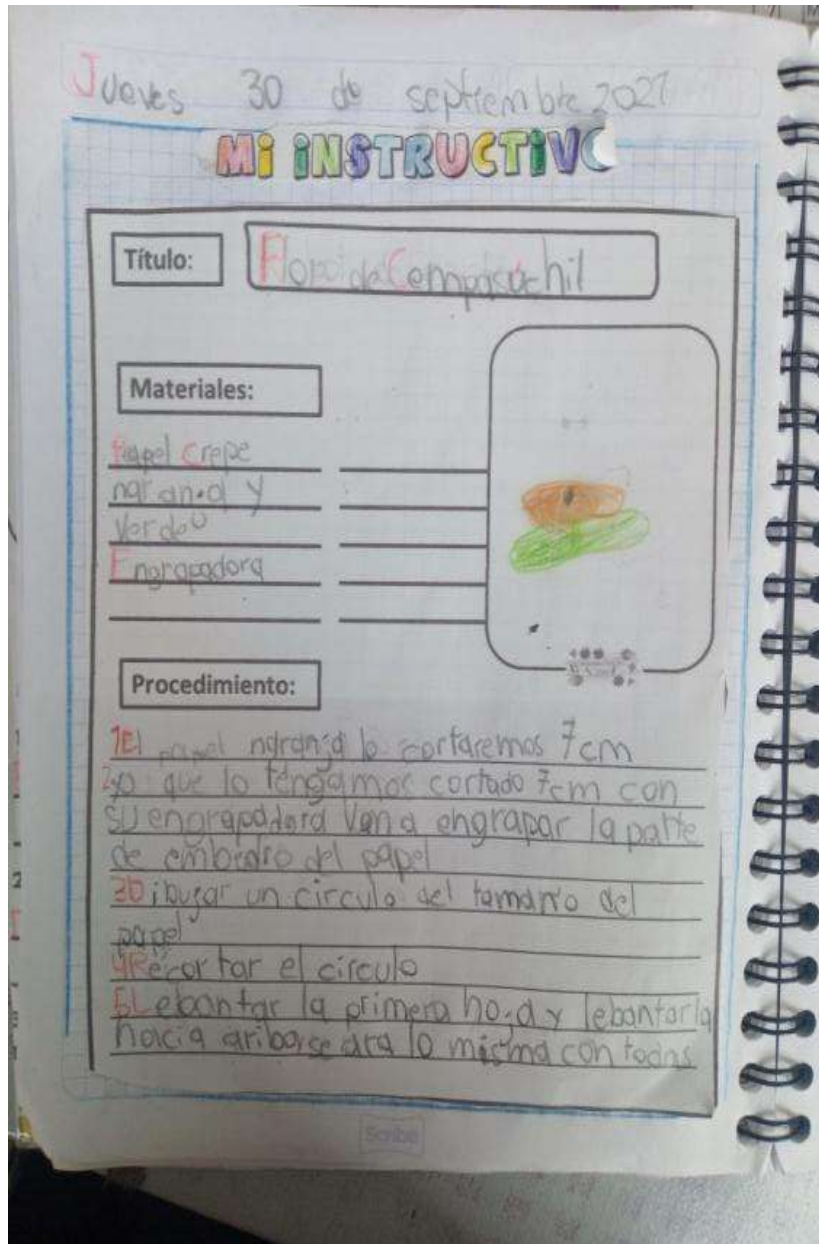 Jueves 30 de septiembre 2021
MI INSTRUCTIVO
Título:
Flor de Cempasúchil
Materiales:
Papel Crepe
naranja y
Verde
Engrapadora
Procedimiento:
1El papel naranja lo cortaremos 7cm
2ya que lo tengamos cortado 7cm con
su engrapadora Van a engrapar la parte
de enmedio del papel
3Dibujar un circulo del tamaño del
papel
4Recortar el circulo
5Lebantar la primera hoja y lebantarla
hacia ariba se ara lo misma con todas
Scribe